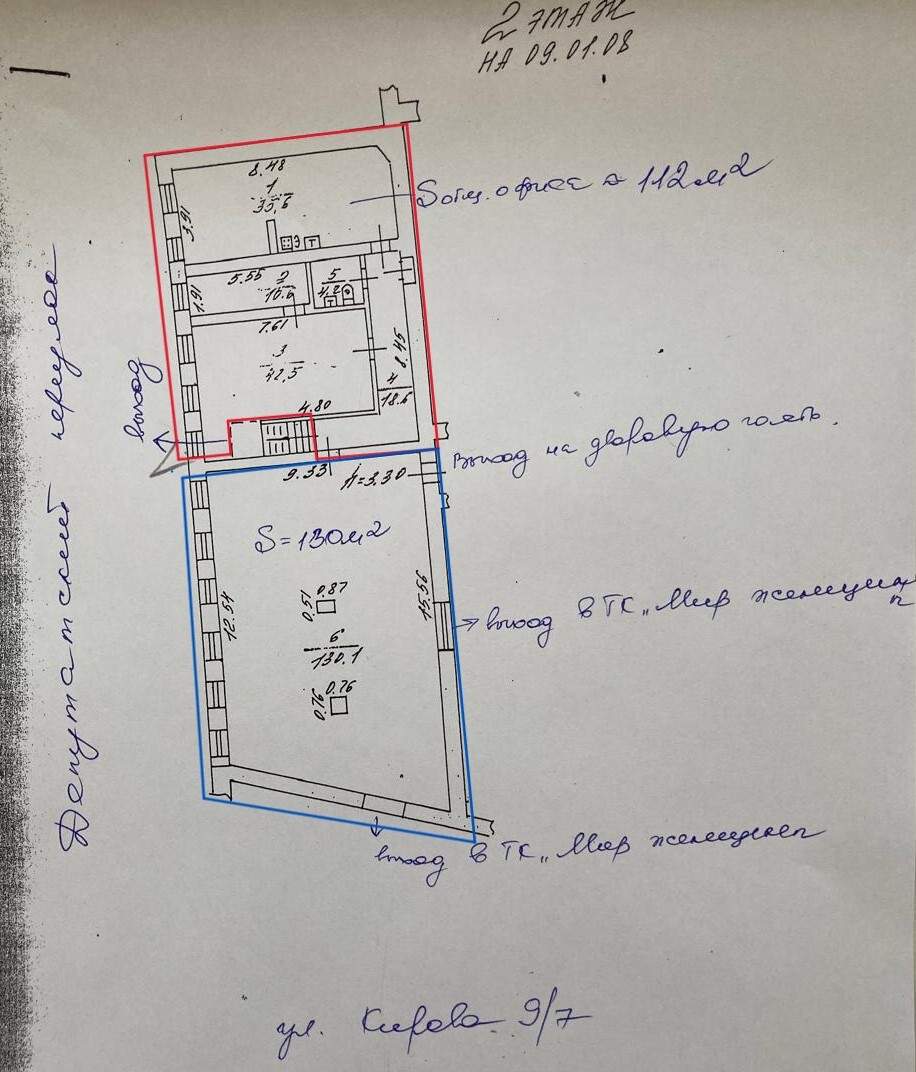 2 ЭТАЖ
НА 09.01.08
8.48
1
33,6
3.91
Э
Т
Sобщ. офиса ≈ 112 м2
5.55
2
10.6
1.91
5
4.2
Т
7.61
3
42,5
8.45
4
18.6
4.80
выход
Депутатский переулок
Выход на дворовую часть.
9.33
h=3.30
S=130м2
0.51
0.87
12.54
15.56
6
130.1
0.76
0.76
выход в ТК „Мир женщины"
выход в ТК „Мир женщины"
ул. Кирова 9/7